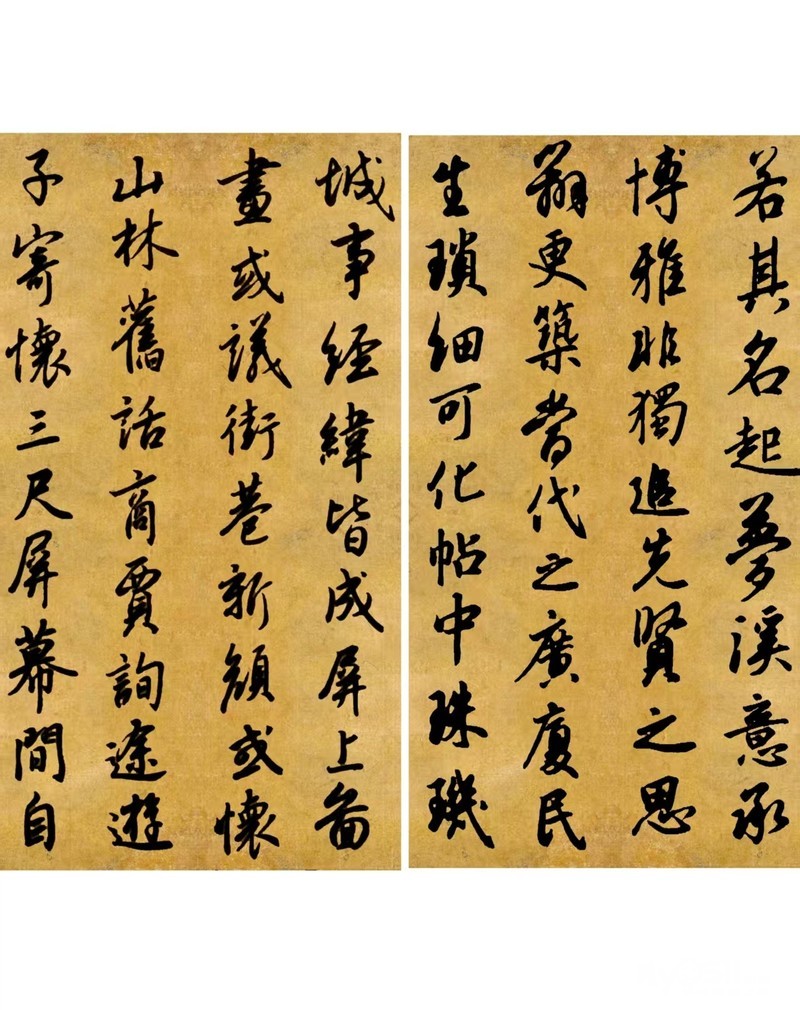 若其名起夢溪意承
博雅非獨追先賢之思
辭更築當代之廣廈民
生瑣細可化帖中珠璣
城事經緯皆成屏上圖
畫或議街巷新顔或懷
山林舊話商賈詢途遊
子寄懷三尺屏幕間自